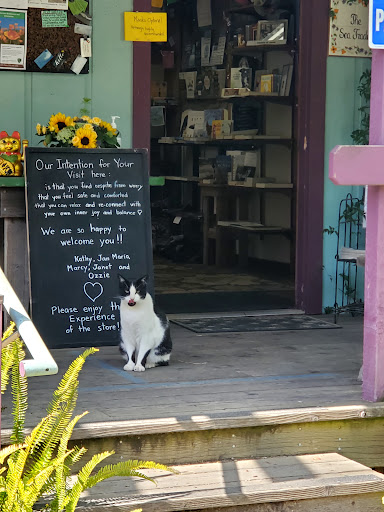 Masks Optional
The
Sea Fa
P
Our Intention for Your
Visit here:
is that you find respite from worry
that you feel safe and comforted
that you can relax and re-connect with
your own inner joy and balance
We are so happy to
welcome you!!
Kathy, Jan Marie,
Marcy, Janet and
Ozzie
Please enjoy the
Experience
of the store!